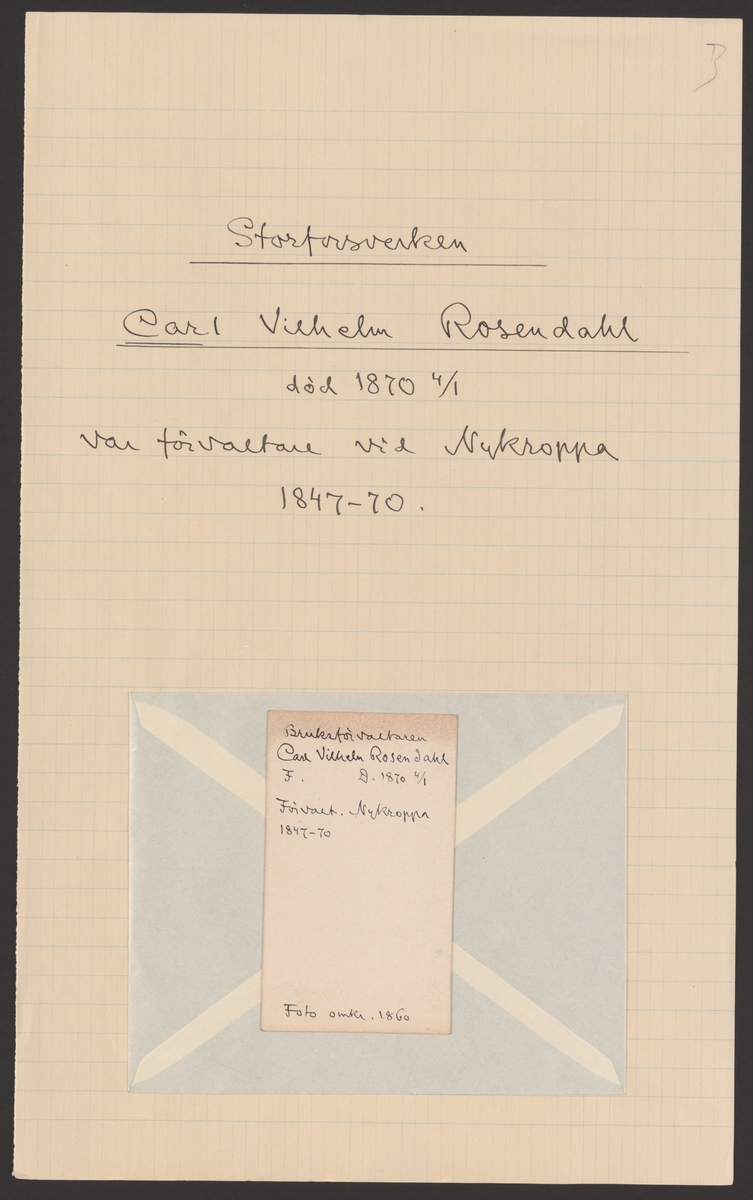 Storforsverken
Carl Vilhelm Rosendahl
död 1870 4/1
var förvaltare vid Nykroppa
1847-70.
Bruksförvaltaren
Carl Vilhelm Rosendahl
F. D. 1870 4/1
Förvalt. Nykroppa
1847-70
Foto omkr. 1860